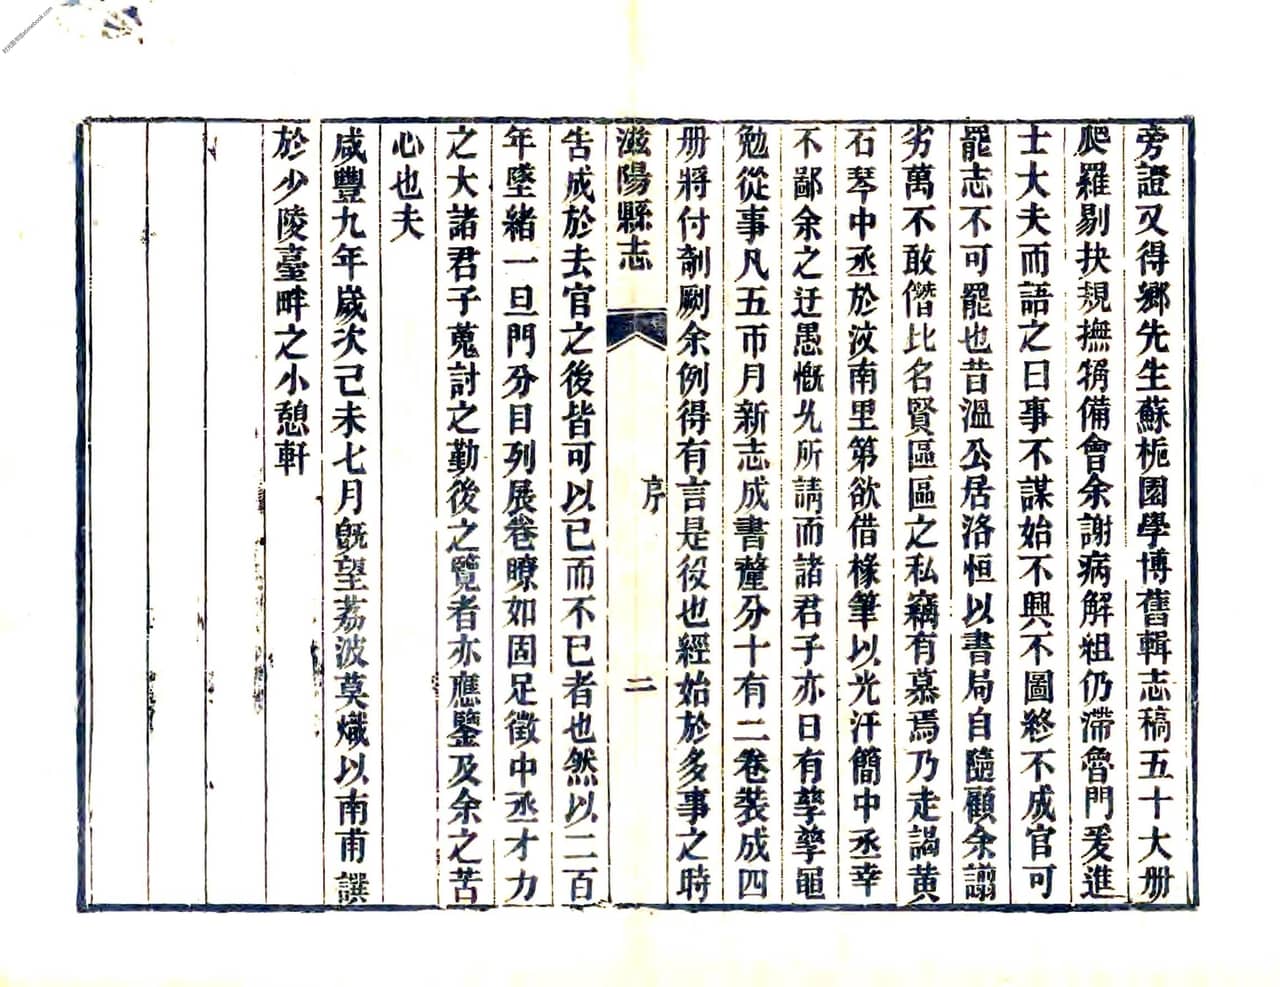 旁證又得鄉先生蘇梔園學博舊輯志稿五十大册
爬羅剔抉規撫犓備會余謝病解組仍滯魯門爰進
士大夫而語之曰事不謀始不興不圖終不成官可
罷志不可罷也昔溫公居洛恒以書局自隨顧余譾
劣萬不敢僭比名賢區區之私竊有慕焉乃走謁黃
石琴中丞於汶南里第欲借椽筆以光汗簡中丞幸
不鄙余之迂愚慨允所請而諸君子亦日有孳孳黽
勉從事凡五帀月新志成書釐分十有二卷裝成四
册將付剞劂余例得有言是役也經始於多事之時
滋陽縣志 序 二
告成於去官之後皆可以已而不已者也然以二百
年墜緒一旦門分目列展卷瞭如固足徵中丞才力
之大諸君子蒐討之勤後之覽者亦應鑒及余之苦
心也夫
咸豐九年歲次己未七月旣望荔波莫熾以南甫譔
於少陵臺畔之小憩軒